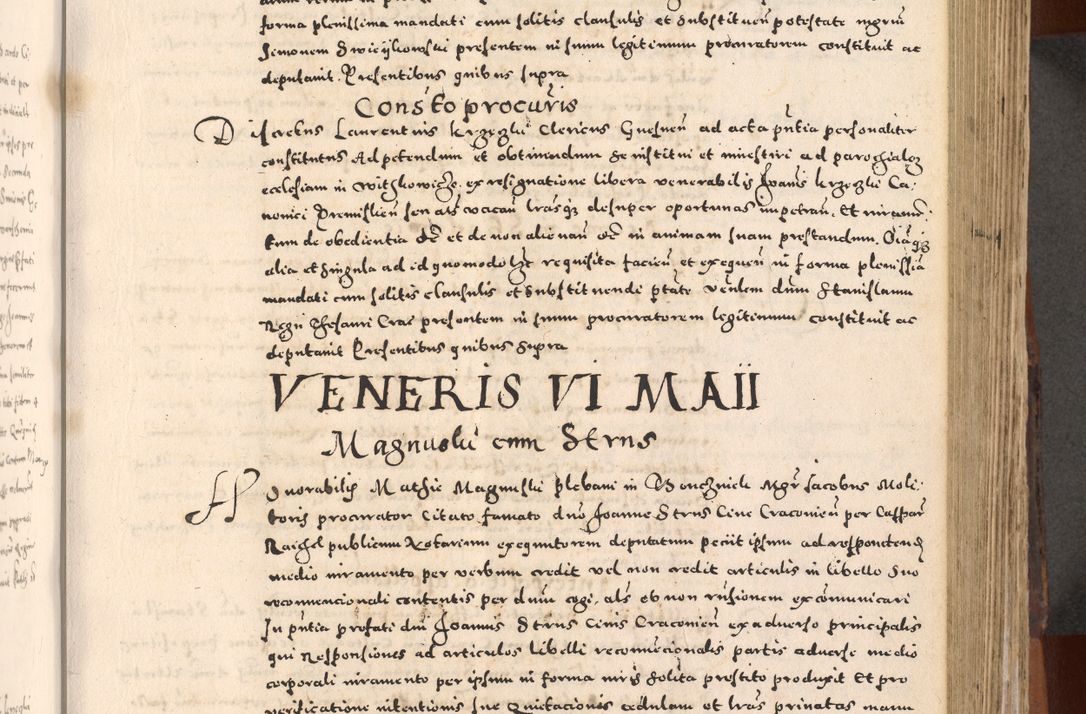 forma plenissima mandati cum solitis clausulis et substituen̄ potestate mgrūm
Simonem Swieykowski presentem in suum legitimum procuratorem constituit ac
deputauit. Presentibus quibus supra
Cons̄to procur̄is
Discretus Laurentius Krzeski Clericus Gnesnen̄ ad acta p̄ntia personaliter
constitutus Ad petendum et obtinendum se institui et inuestiri ad parochialem
ecclesiam in Withkowicze ex resignatione libera venerabilis Joan̄is Krzeski Ca-
nonici Premislien̄ seu al̄s vacan̄ l̄rasq3 desuper oportunas impetran̄. Et iuramen-
tum de obedientia &c̄ et de non alienan̄ &c̄ in animam suam prestandum. Oīaq3
alia et singula ad id quomodol3t requisita facien̄ et exequen̄ in forma plenissīa
mandati cum solitis clausulis et substituendi p̄tate ven̄lem dn̄um Stanislaum
presentem in suum procuratorem legitimum constituit ac
deputauit Presentibus quibus supra
VENERIS VI MAII
Magnuski cum Strus
Honorabilis Mathie Magnuski plebani in Mgr̄ Jacobus Moli-
toris procurator Citato famato dn̄o Joanne Strus Ciue Cracouien̄ per Caspar̄
publicum Notarium exequutorem deputatum peciit ipsum ad respondend̄
medio iuramento per verbum credit vel non credit articulis in libello suo
reconuencionali contentis per dn̄um cogi, al̄s ob non r̄nsionem excōmunicari
In p̄ntia prefati dn̄i Joannis Strus Ciuis Cracouien̄ ex aduerso principalis
qui Responsiones ad articulos libelli reconuēcionalis partis aduerse medio
corporali iuramento per ipsum in forma iuris solita prestito produxit Et pro
verificatione intentionis sue Quietacionis cedulam et l̄ras priuatas manu